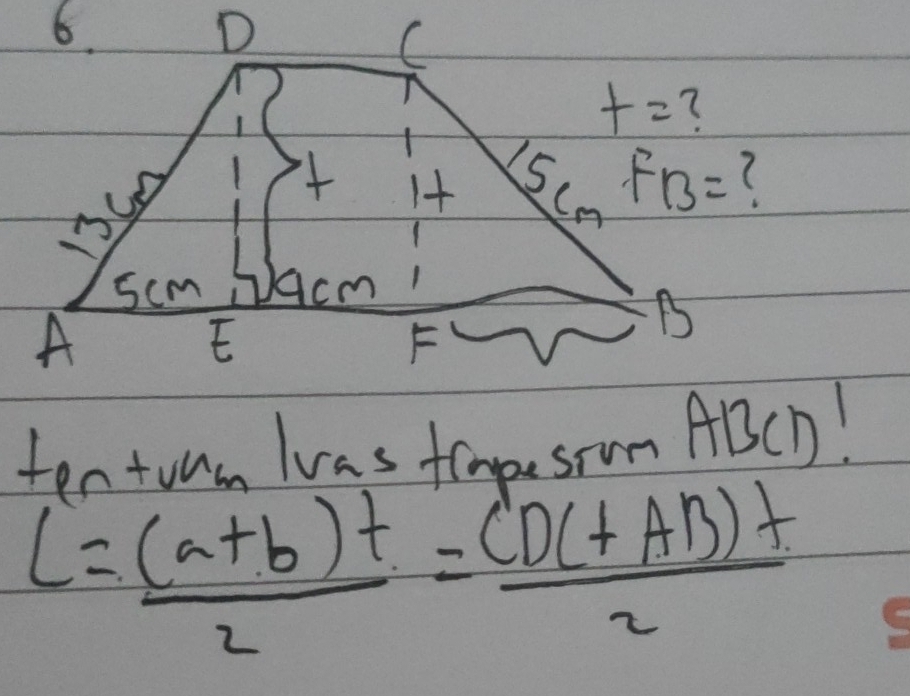 6.
D C
t = ?
13 cm t t 15 cm FB = ?
5cm 9cm
A E F B
tentukan luas trapesium ABCD!
L = (a+b) t = CD(+ AB) t
2 2
5